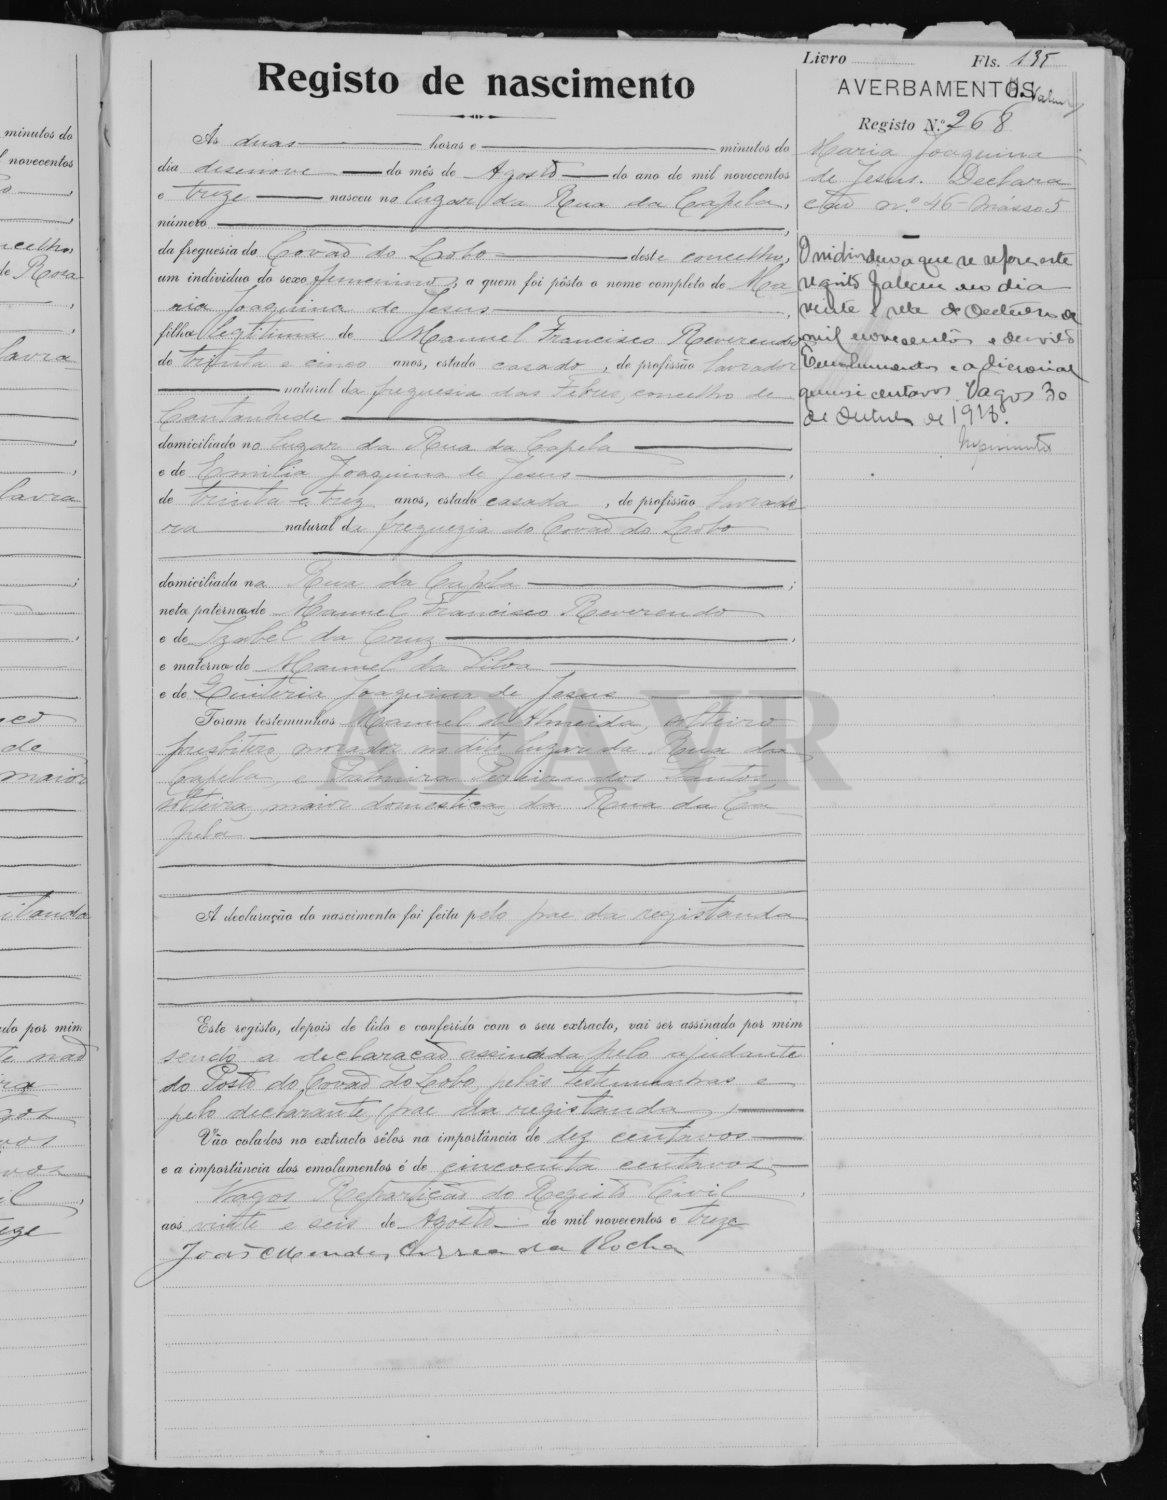 Livro Fls. 135
Registo de nascimento
AVERBAMENTOS
Registo N.º 268
Ás duas horas e minutos do
dia desenove do mês de Agosto do ano de mil novecentos
e treze nasceu no lugar da Rua da Capela,
número
da freguesia do Covão do Lobo deste concelho,
um individuo do sexo femenino, a quem foi pôsto o nome completo de Ma
ria Joaquina de Jesus
filha legitima de Manuel Francisco Reverendo
de trinta e cinco anos, estado casado, de profissão lavrador
natural da freguesia das Febres, concelho de
Cantanhede
domiciliado no lugar da Rua da Capela
e de Emilia Joaquina de Jesus,
de trinta e trez anos, estado casada, de profissão lavrado
ra natural da freguezia do Covão do Lobo
domiciliada na Rua da Capela;
neta paterna de Manuel Francisco Reverendo
e de Izabel da Cruz,
e materna de Manuel da Silva
e de Quiteria Joaquina de Jesus
Foram testemunhas Manuel d'Almeida, solteiro
presbitero, morador no dito lugar da Rua da
Capela, e Palmira Ferreira dos Santos,
solteira, maior domestica, da Rua da Ca
pela
A declaração do nascimento foi feita pelo pae da registanda
Este registo, depois de lido e conferido com o seu extracto, vai ser assinado por mim
sendo a declaração assinada pelo ajudante
do Posto do Covão do Lobo, pelas testemunhas e
pelo declarante, pae da registanda,
Vão colados no extracto sêlos na importância de dez centavos
e a importância dos emolumentos é de cincoenta centavos,
Vagos Repartição do Registo Civil,
aos vinte e seis de Agosto de mil novecentos e treze
João Mendes Correa da Rocha
Maria Joaquina
de Jesus. Declara
ção n.º 46 - Másso 5
O individuo a que se refere este
registo faleceu no dia
vinte e sete de Outubro de
mil novecentos e dezoito
Emolumentos e adicional
quinze centavos. Vagos 30
de Outubro de 1918.
ADAVR
minutos do
novecentos
de Rosa
lavra
lavra
de
maior
do por mim